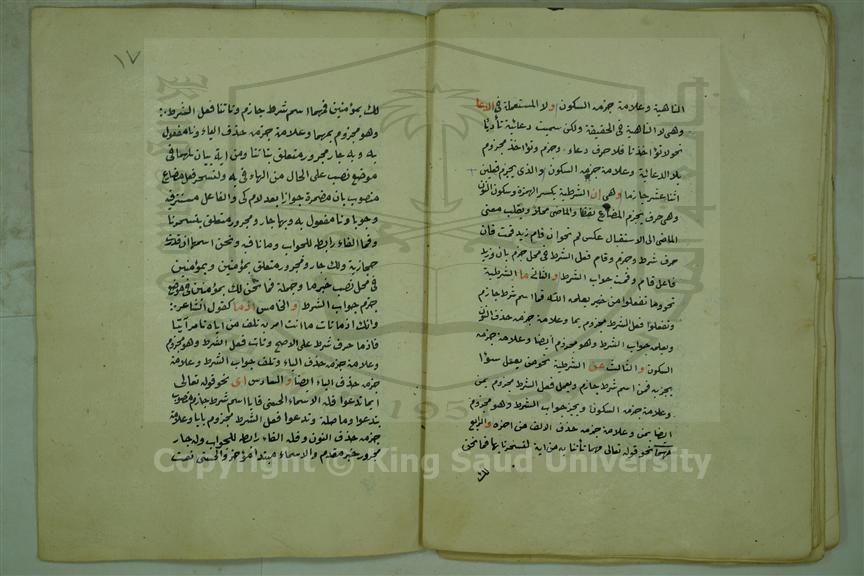 الناهية وعلامة جزمه السكون ولا المستعملة في الدعا
وهي لا الناهية في الحقيقة ولكن سميت دعائية تأدبا
نحو لا تؤاخذنا فلا حرف دعاء وجزم وتؤاخذ مجزوم
بلا الدعائية وعلامة جزمه السكون والذي يجزم فعلين
اثنا عشر جازما وهي إن الشرطية بكسر الهمزة وسكون النون
وهي حرف يجزم المضارع لفظا والماضي محلا ويقلب معنى
الماضي الى الاستقبال عكس لم نحو ان قام زيد قمت فان
حرف شرط وجزم وقام فعل الشرط في محل جزم بان وزيد
فاعل قام وقمت جواب الشرط والثاني ما الشرطية
نحو وما تفعلوا من خير يعلمه الله فما اسم شرط جازم
وتفعلوا فعل الشرط مجزوم بما وعلامة جزمه حذف النون
ويعلمه جواب الشرط وهو مجزوم ايضا وعلامة جزمه
السكون والثالث من الشرطية نحو من يعمل سوءا
يجز به فمن اسم شرط جازم ويعمل فعل الشرط مجزوم بمن
وعلامة جزمه السكون ويجز جواب الشرط وهو مجزوم
ايضا بمن وعلامة جزمه حذف الالف من اخره والرابع
مهما نحو قوله تعالى مهما تأتنا به من اية لتسحرنا بها فما نحن
لك
١٧
لك بمؤمنين فمهما اسم شرط جازم وتأتنا فعل الشرط
وهو مجزوم بمهما وعلامة جزمه حذف الياء ونا مفعول
به وبه جار ومجرور متعلق بتأتنا ومن اية بيان لمهما في
موضع نصب على الحال من الهاء في به ولتسحر فعل مضارع
منصوب بان مضمرة جوازا بعد لام كي والفاعل مستتر فيه
وجوبا ونا مفعول به وبها جار ومجرور متعلق بتسحرنا
وفما الفاء رابطة للجواب وما نافية ونحن اسمها ان قدرت
حجازية ولك جار ومجرور متعلق بمؤمنين وبمؤمنين
في محل نصب خبر ما وجملة فما نحن لك بمؤمنين في موضع
جزم جواب الشرط والخامس اذما كقول الشاعر
وانك اذما تأت ما انت امر به تلف من اياه تأمر آتيا
فاذما حرف شرط على الاصح وتأت فعل الشرط وهو مجزوم
وعلامة جزمه حذف الياء وتلف جواب الشرط وعلامة
جزمه حذف الياء ايضا والسادس اي نحو قوله تعالى
ايما تدعوا فله الاسماء الحسنى فايا اسم شرط جازم منصوب
بتدعوا وما صلة وتدعوا فعل الشرط مجزوم بايا وعلامة
جزمه حذف النون وفله الفاء رابطة للجواب وله جار
مجرور خبر مقدم والاسماء مبتدأ مؤخر والحسنى نعت
Copyright © King Saud University
1957